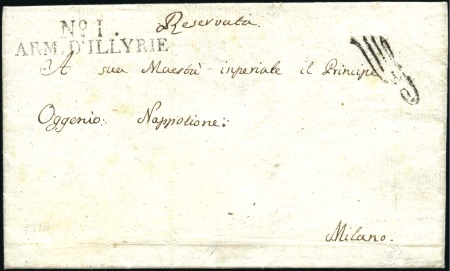 Nº 1.
ARM. D'ILLYRIE
Reservata
A sua Maestà inperiale il Principe
Oggenio: Nappotione:
Milano.